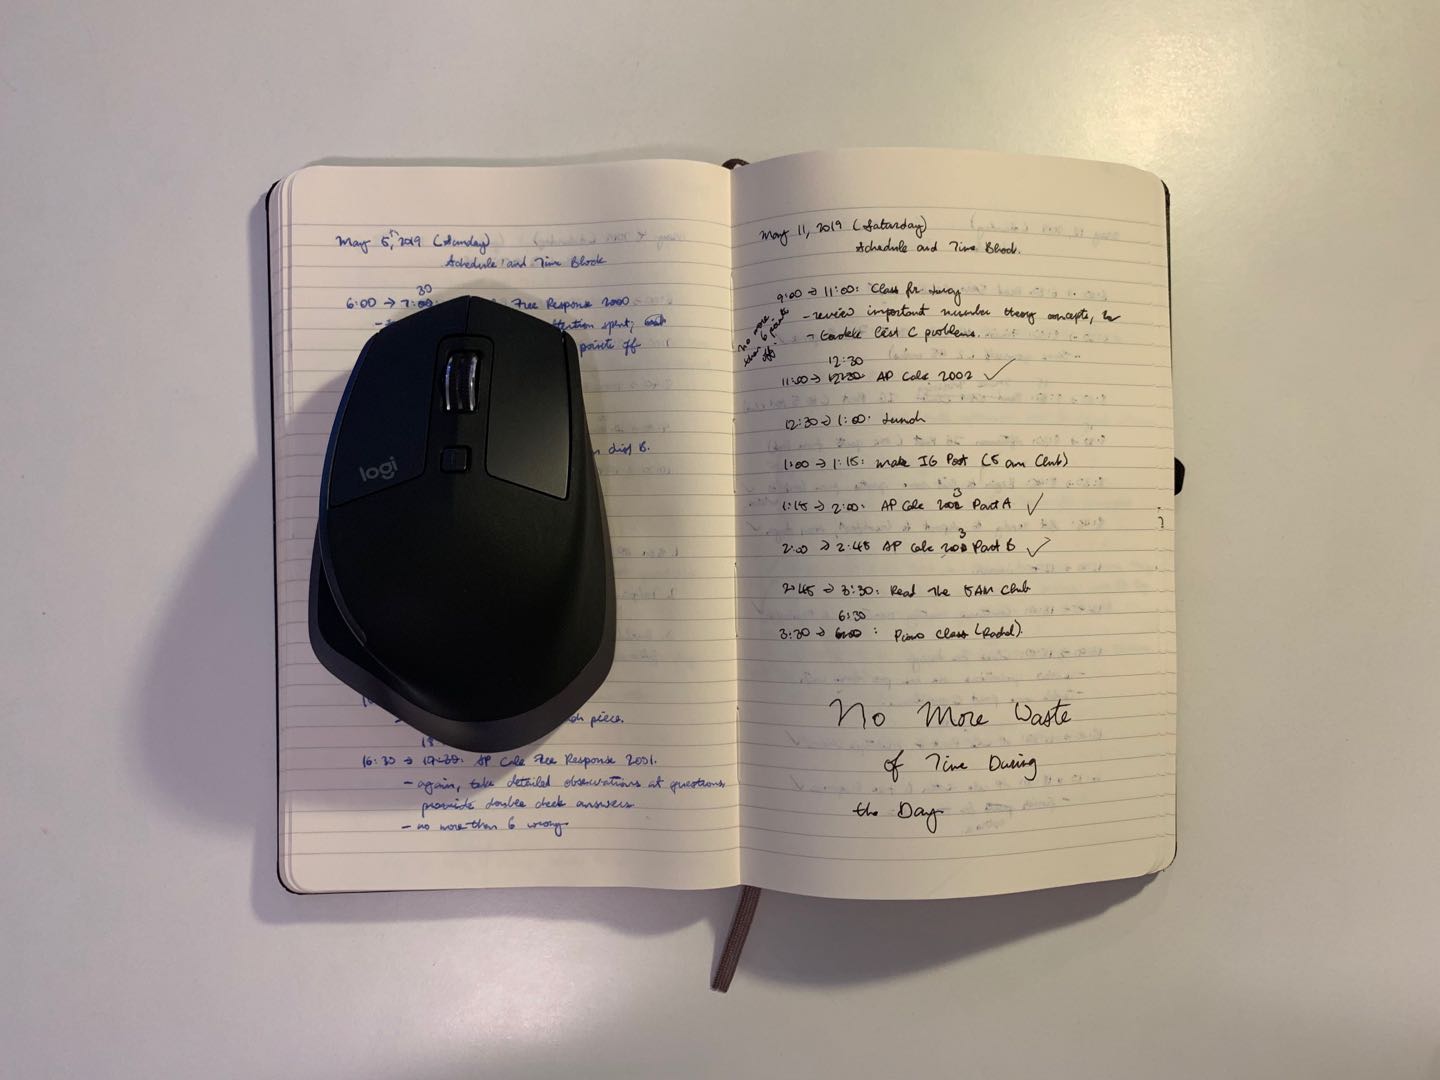 May 5, 2019 (Sunday)
Schedule and Time Block
30
6:00 → 7:00: Free Response 2000
attention spent;
points off
logi
B.
piece.
16:30 → AP Calc Free Response 2001.
- again, take detailed observations at questions
provide double check answers
- no more than 6 wrong
May 11, 2019 (Saturday)
Schedule and Time Block.
9:00 → 11:00: Class for
- review important number theory concepts,
C problems.
no more
than 6 points
off.
12:30
11:00 → 12:30 AP Calc 2002 ✓
12:30 → 1:00: Lunch
1:00 → 1:15: Make IG Post (5 am Club)
3
1:15 → 2:00: AP Calc 2002 Part A ✓
3
2:00 → 2:45 AP Calc 2003 Part B ✓
2:45 → 3:30: Read The 5AM Club
6:30
3:30 → 6:00: Piano Class (Rachel).
No More Waste
of Time During
the Day